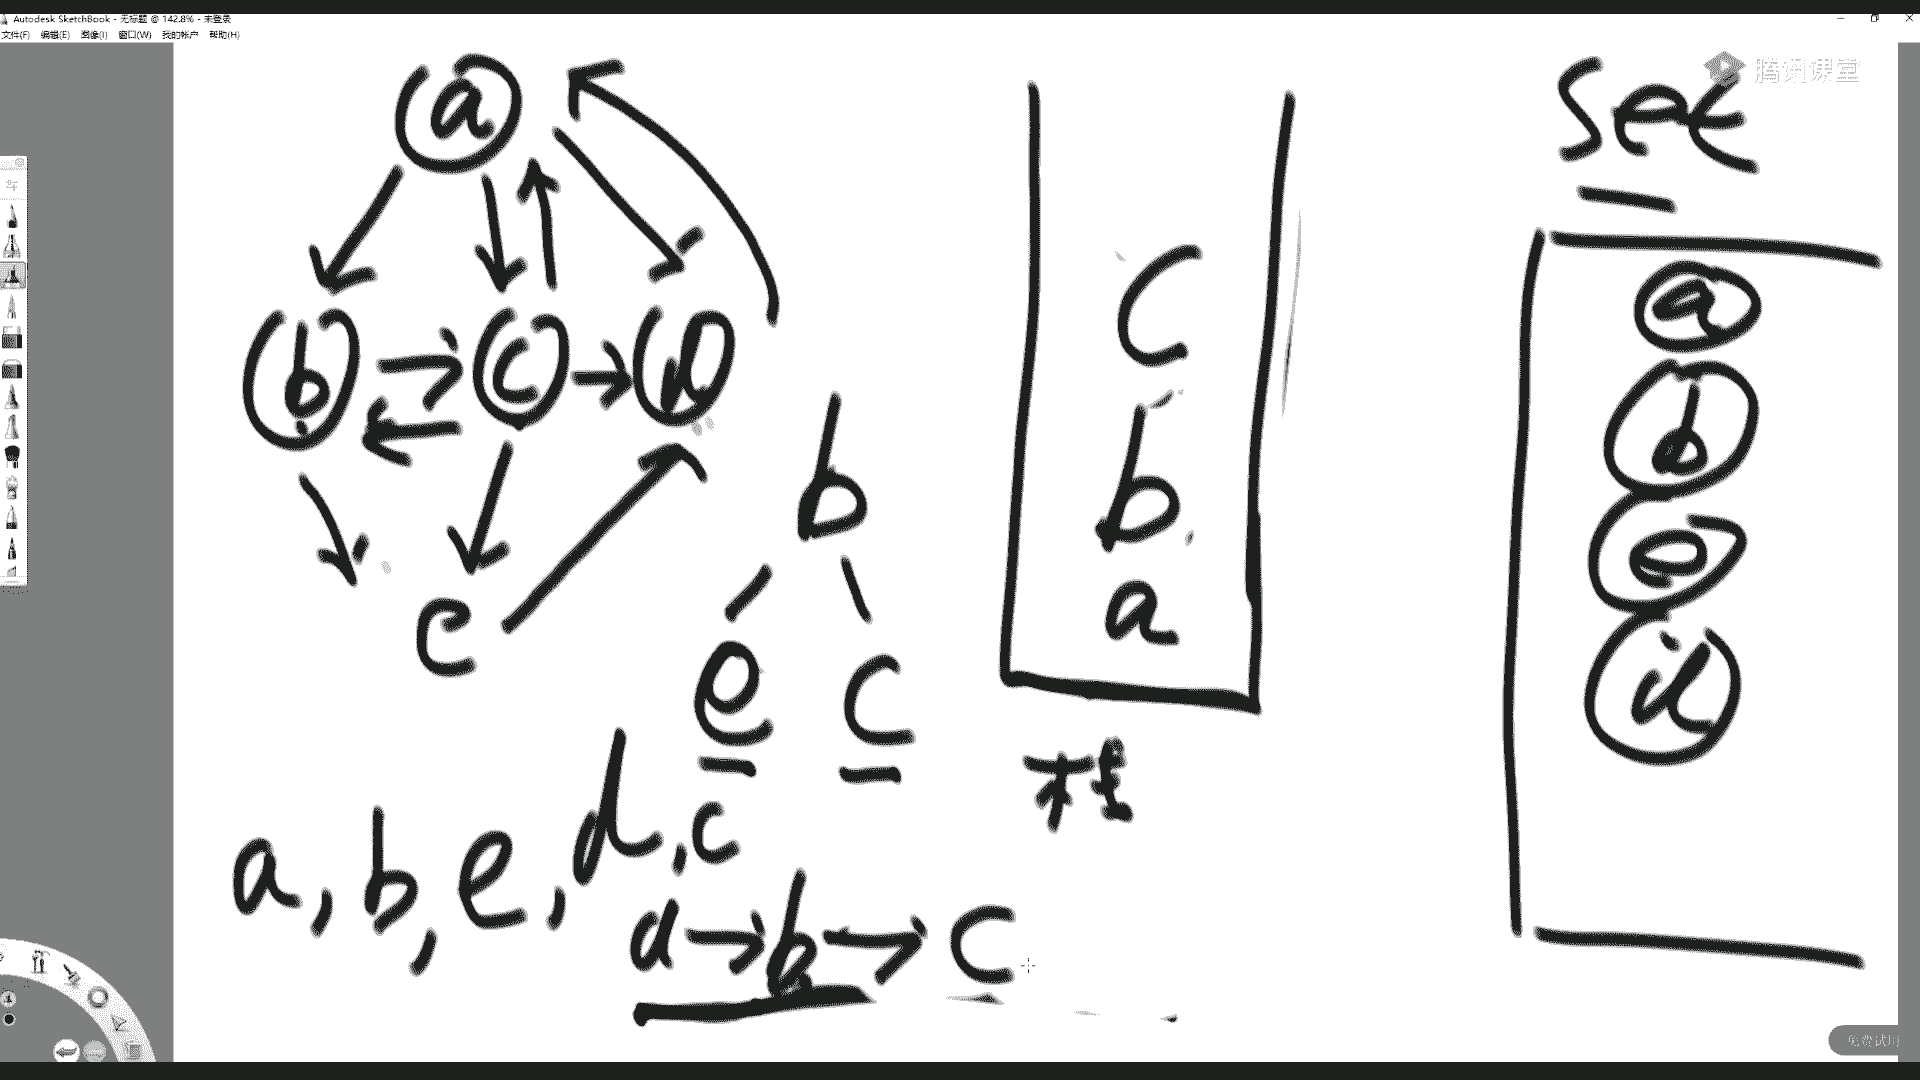 Autodesk SketchBook - 无标题 @ 142.8% - 未登录
文件(F) 编辑(E) 图像(I) 窗口(W) 我的帐户 帮助(H)
腾讯课堂
set
a
b c d
e
b
e c
c
b
a
栈
a
b
e
d
a, b, e, d, c
d→b→c
免费试用